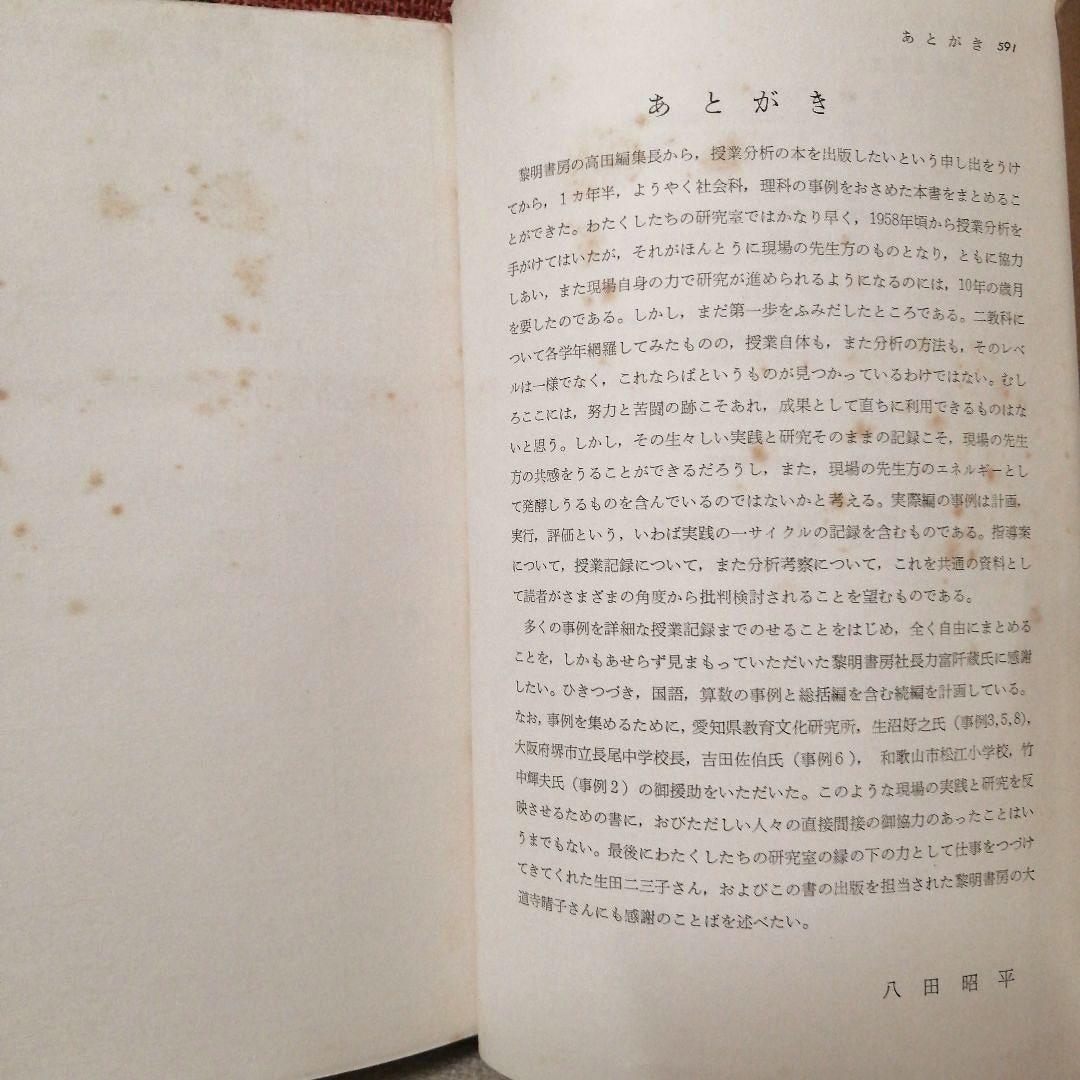 あとがき 591
あとがき
黎明書房の高田編集長から，授業分析の本を出版したいという申し出をうけ
てから，１カ年半，ようやく社会科，理科の事例をおさめた本書をまとめるこ
とができた。わたくしたちの研究室ではかなり早く，1958年頃から授業分析を
手がけてはいたが，それがほんとうに現場の先生方のものとなり，ともに協力
しあい，また現場自身の力で研究が進められるようになるのには，10年の歳月
を要したのである。しかし，まだ第一歩をふみだしたところである。二教科に
ついて各学年網羅してみたものの，授業自体も，また分析の方法も，そのレベ
ルは一様でなく，これならばというものが見つかっているわけではない。むし
ろここには，努力と苦闘の跡こそあれ，成果として直ちに利用できるものはな
いと思う。しかし，その生々しい実践と研究そのままの記録こそ，現場の先生
方の共感をうることができるだろうし，また，現場の先生方のエネルギーとし
て発酵しうるものを含んでいるのではないかと考える。実際編の事例は計画，
実行，評価という，いわば実践の一サイクルの記録を含むものである。指導案
について，授業記録について，また分析考察について，これを共通の資料とし
て読者がさまざまの角度から批判検討されることを望むものである。
多くの事例を詳細な授業記録までのせることをはじめ，全く自由にまとめる
ことを，しかもあせらず見まもっていただいた黎明書房社長力富阡蔵氏に感謝
したい。ひきつづき，国語，算数の事例と総括編を含む続編を計画している。
なお，事例を集めるために，愛知県教育文化研究所，生沼好之氏（事例3,5,8），
大阪府堺市立長尾中学校長，吉田佐伯氏（事例６），和歌山市松江小学校，竹
中輝夫氏（事例２）の御援助をいただいた。このような現場の実践と研究を反
映させるための書に，おびただしい人々の直接間接の御協力のあったことはい
うまでもない。最後にわたくしたちの研究室の縁の下の力として仕事をつづけ
てきてくれた生田二三子さん，およびこの書の出版を担当された黎明書房の大
道寺晴子さんにも感謝のことばを述べたい。
八田昭平